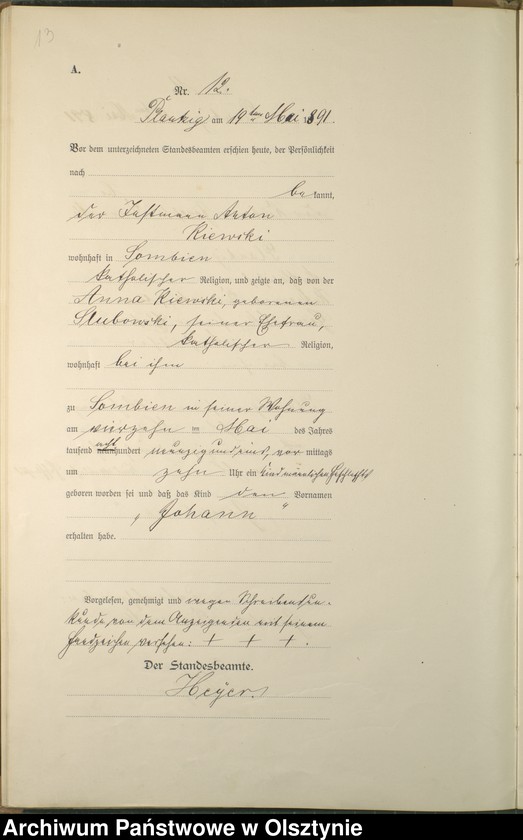 13
A.
Nr. 12.
Plautzig am 19ten Mai 1891.
Vor dem unterzeichneten Standesbeamten erschien heute, der Persönlichkeit
nach
bekannt,
der Instmann Anton
Kiewski
wohnhaft in Sombien
katholischer Religion, und zeigte an, daß von der
Anna Kiewski, geborenen
Slubowski, seiner Ehefrau,
katholischer Religion,
wohnhaft bei ihm
zu Sombien in seiner Wohnung
am vierzehn ten Mai des Jahres
tausend acht hundert neunzig und eins, vor mittags
um zehn Uhr ein Kind männlichen Geschlechts
geboren worden sei und daß das Kind den Vornamen
„Johann“
erhalten habe.
Vorgelesen, genehmigt und wegen Schreibensun-
kunde von dem Anzeigenden mit seinem
Handzeichen versehen: + + +.
Der Standesbeamte.
Heyer.
Archiwum Państwowe w Olsztynie